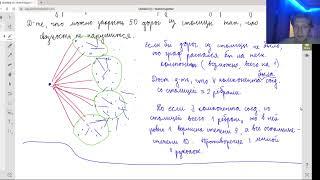 Д-те, что можно закрыть 50 дорог из столицы так, что
связность не нарушится.
если бы дорог из столицы не было,
то граф распался бы на неск.
компонент (возможно, всего на 1)
была
Дост. д-ть, что ∀ компонента соед.
со столицей ≥ 2 рёбрами.
Но если ∃ компонента соед. со
столицей всего 1 ребром, то в ней
ровно 1 вершина степени 9, а все остальные
степени 10. Противоречие с леммой
о рукопож.